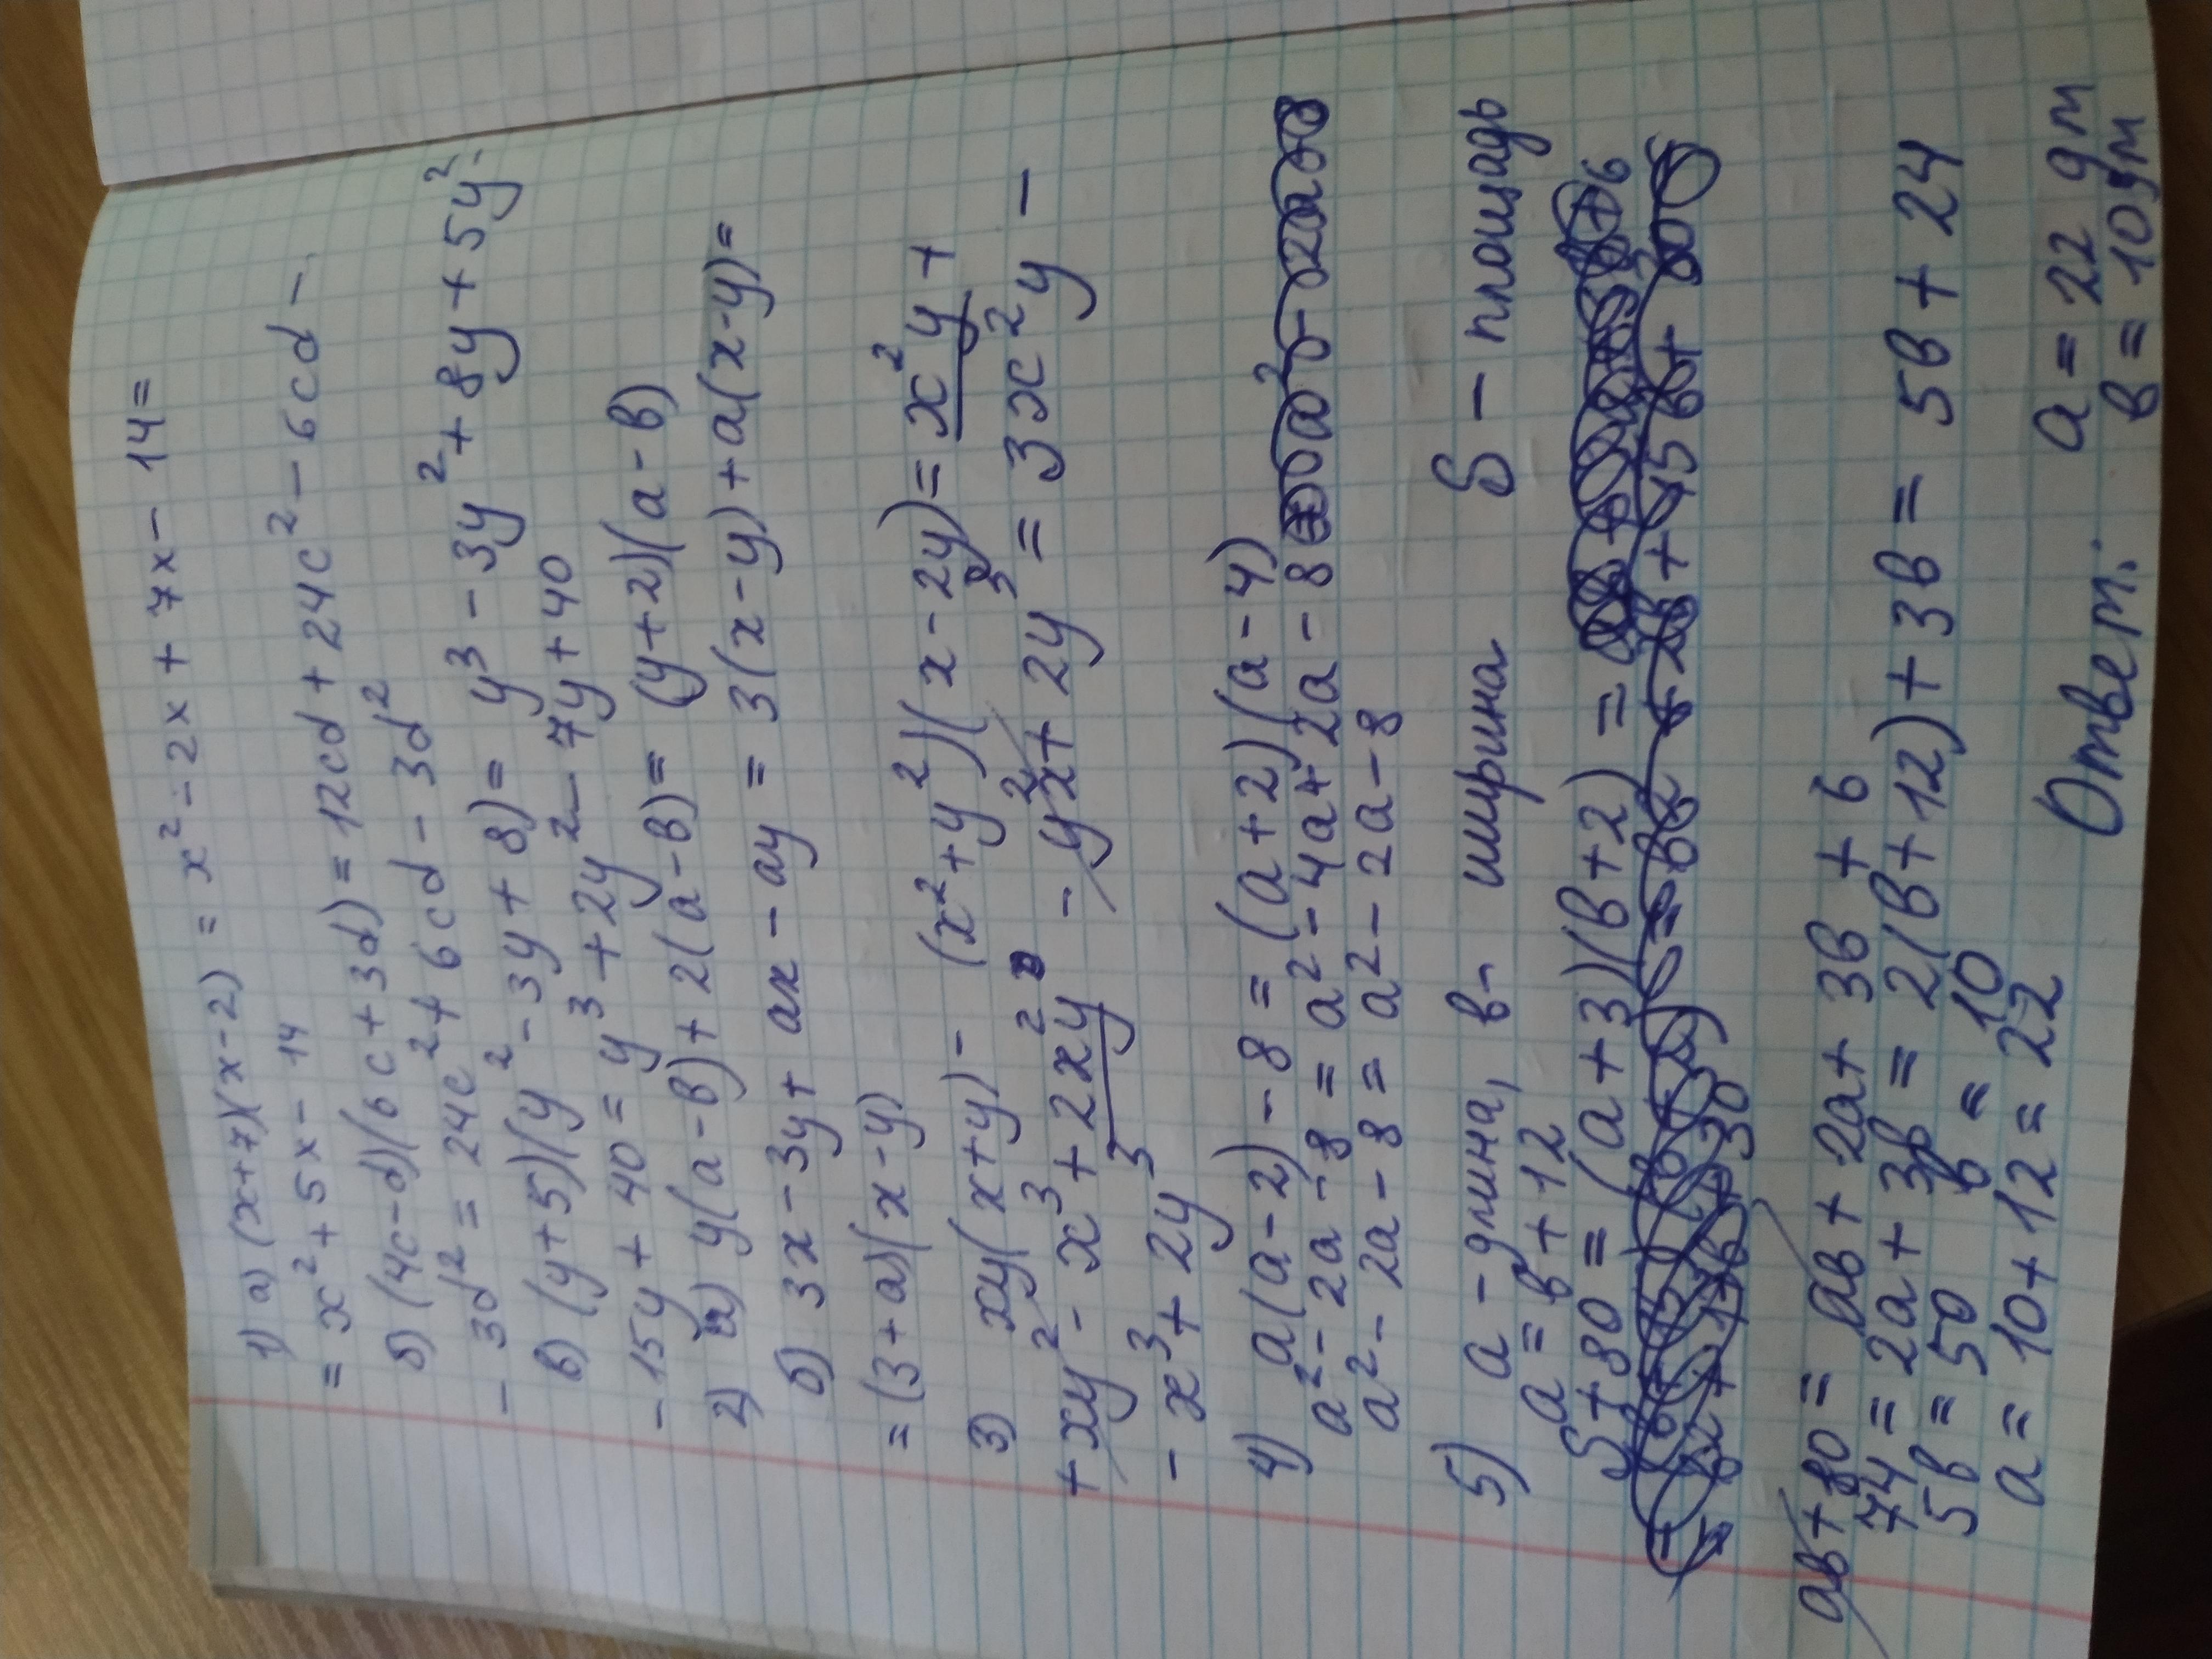 1) а) (x+7)(x-2) = x² - 2x + 7x - 14 =
= x² + 5x - 14
б) (4c-d)(6c+3d) = 12cd + 24c² - 6cd -
- 3d² = 24c² + 6cd - 3d²
в) (y+5)(y² - 3y + 8) = y³ - 3y² + 8y + 5y² -
- 15y + 40 = y³ + 2y² - 7y + 40
2) а) y(a-в) + 2(a-в) = (y+2)(a-в)
б) 3x - 3y + ax - ay = 3(x-y) + a(x-y) =
= (3+a)(x-y)
3) xy(x+y) - (x²+y²)(x-2y) = x²y +
+ xy² - x³ + 2x²y - y²x + 2y³ = 3x²y -
- x³ + 2y³
4) a(a-2) - 8 = (a+2)(a-4)
a² - 2a - 8 = a² - 4a + 2a - 8
a² - 2a - 8 = a² - 2a - 8
5) a - длина, в - ширина S - площадь
a = в + 12
S + 80 = (a+3)(в+2) =
aв + 80 = aв + 2a + 3в + 6
74 = 2a + 3в = 2(в+12) + 3в = 5в + 24
5в = 50 в = 10
a = 10 + 12 = 22
Ответ: a = 22 дм
в = 10 дм